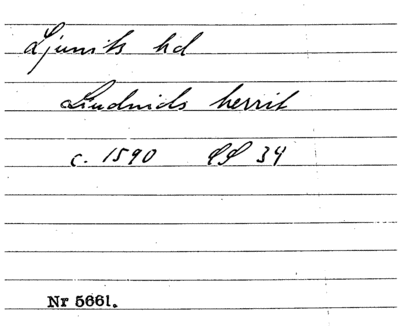 Ljunits hd
Liudnids herrit
c. 1590 SS 34
Nr 5661.